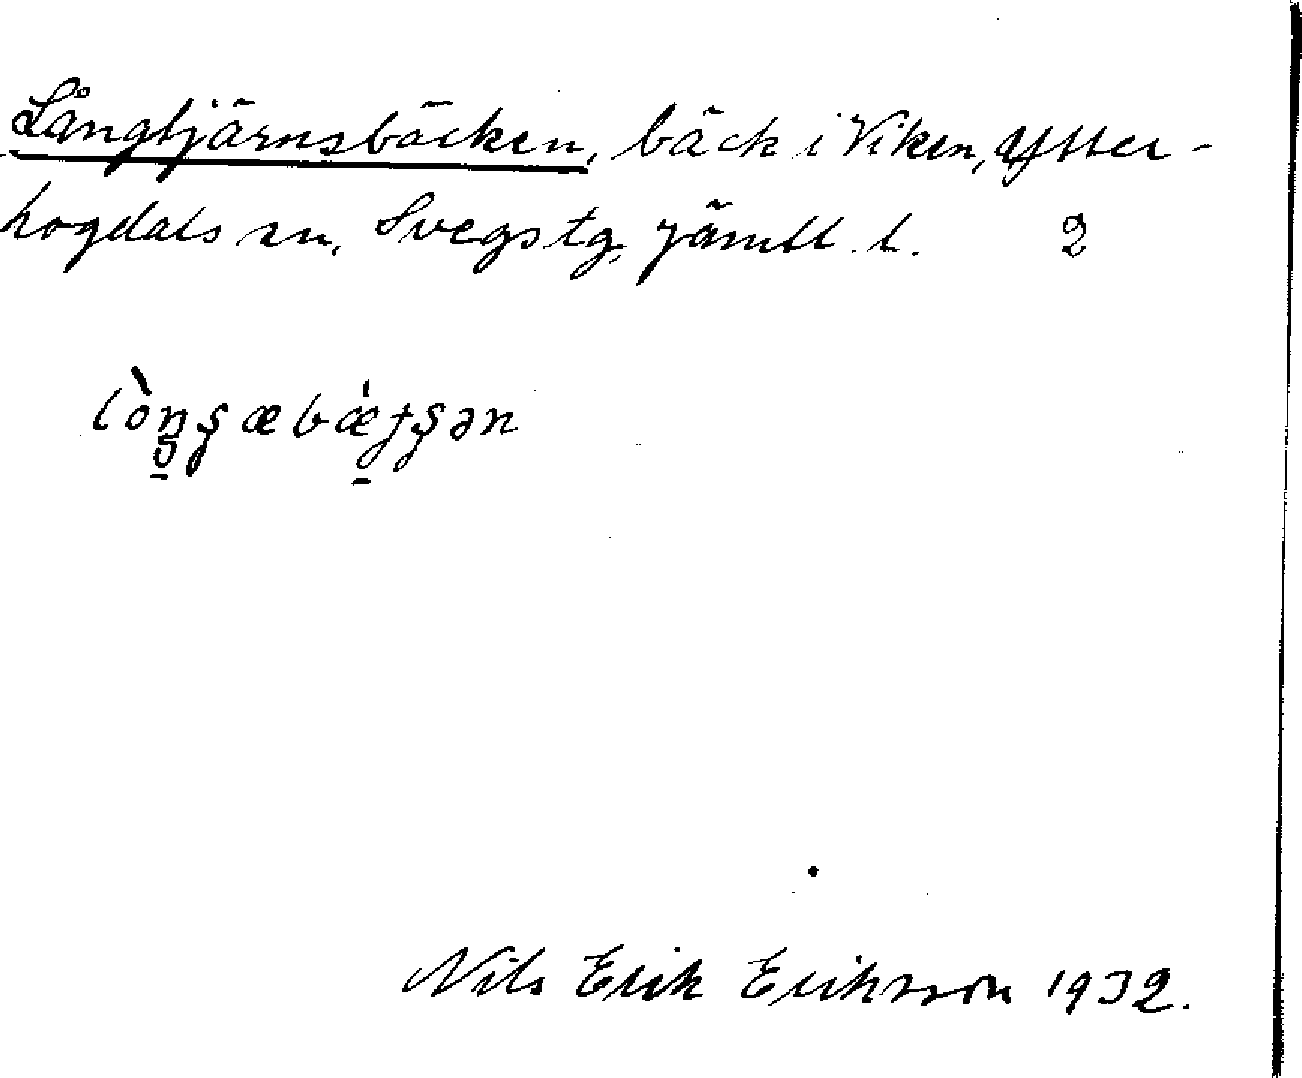 Långtjärnsbäcken, bäck i Viken, Ytter-
hogdals sn, Svegs tg, Jämtl. l. 2
Nils Erik Eriksson 1932.